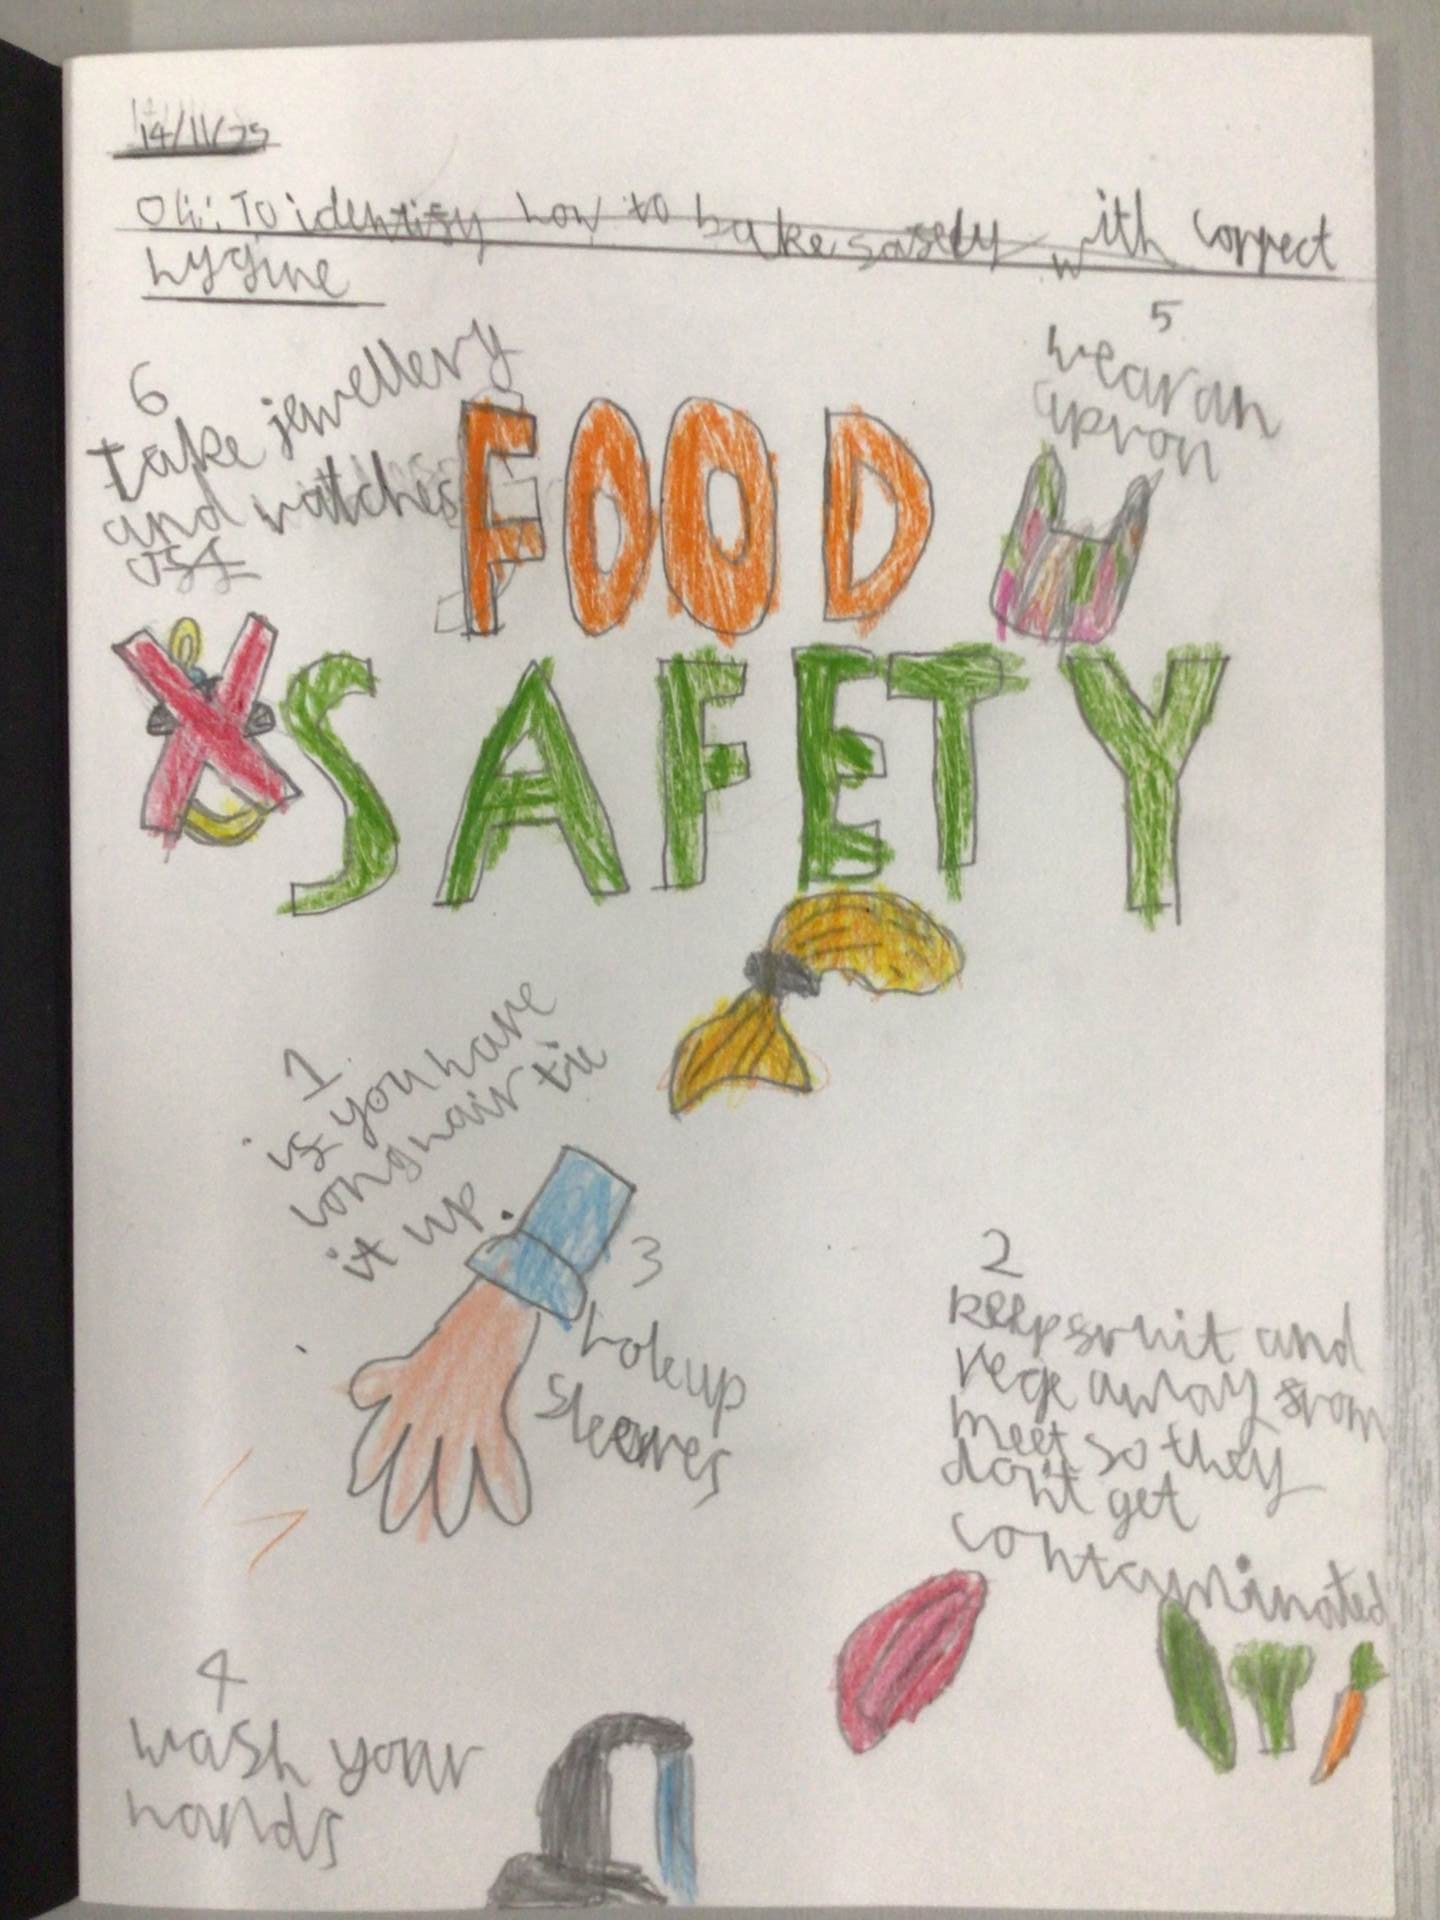 14/11/25
Oli: To identify how to bake safely with correct
hygine
6
take jewellery
and watches
off
5
wear an
apron
FOOD
SAFETY
1
if you have
long hair tie
it up.
3
role up
sleeves
2
keep fruit and
vege away from
meet so they
don't get
contaminated
4
wash your
hands